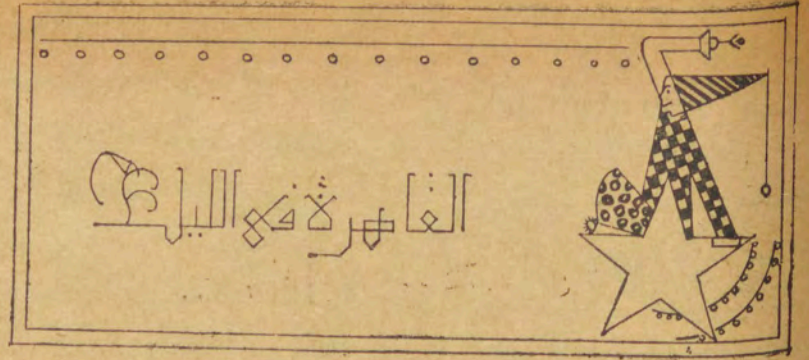 القاهرة فى الليل